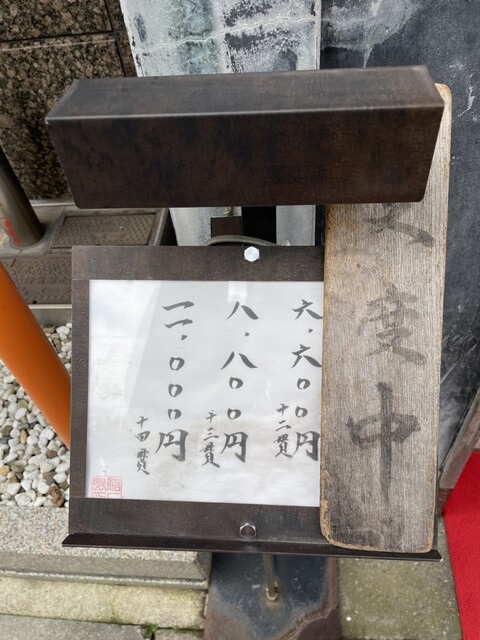 支度中
六、六〇〇円
十二貫
八、八〇〇円
十三貫
一一、〇〇〇円
十四貫